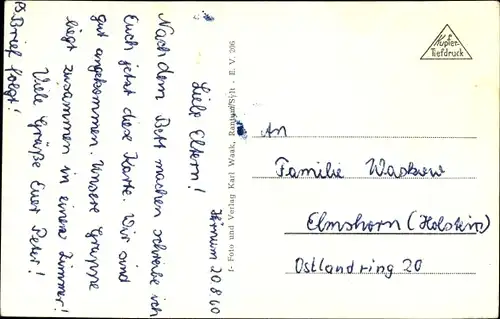 Hörnum 20.8.60
Liebe Eltern!
Nachdem Bett machen schreibe ich
Euch jetzt diese Karte. Wir sind
gut angekommen. Unsere Gruppe
liegt zusammen in einem Zimmer!
Viele Grüße Euer Peter!
PS. Brief folgt!
Foto und Verlag Karl Waak, Rantum/Sylt - E. V. 206
Kupfer-
Tiefdruck
An
Familie Waskow
Elmshorn (Holstein)
Ostlandring 20